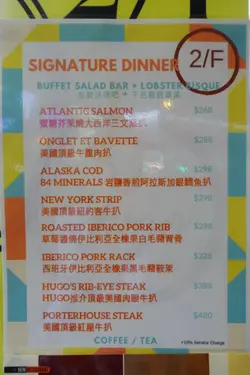 SIGNATURE DINNER 2/F
BUFFET SALAD BAR + LOBSTER BISQUE
ATLANTIC SALMON $268
蜜糖芥茉燒大西洋三文魚扒
ONGLET ET BAVETTE $288
美國頂級牛腹肉扒
ALASKA COD $298
84 MINERALS 岩鹽香煎阿拉斯加銀鱈魚扒
NEW YORK STRIP $298
美國頂級紐約客牛扒
ROASTED IBERICO PORK RIB $298
草莓醬燒伊比利亞全橡果白毛豬背骨
IBERICO PORK RACK $328
西班牙伊比利亞全橡果黑毛豬鞍架
HUGO'S RIB-EYE STEAK $388
HUGO推介頂級美國肉眼牛扒
PORTERHOUSE STEAK $480
美國頂級紅屋牛扒
COFFEE / TEA
+10% Service Charge